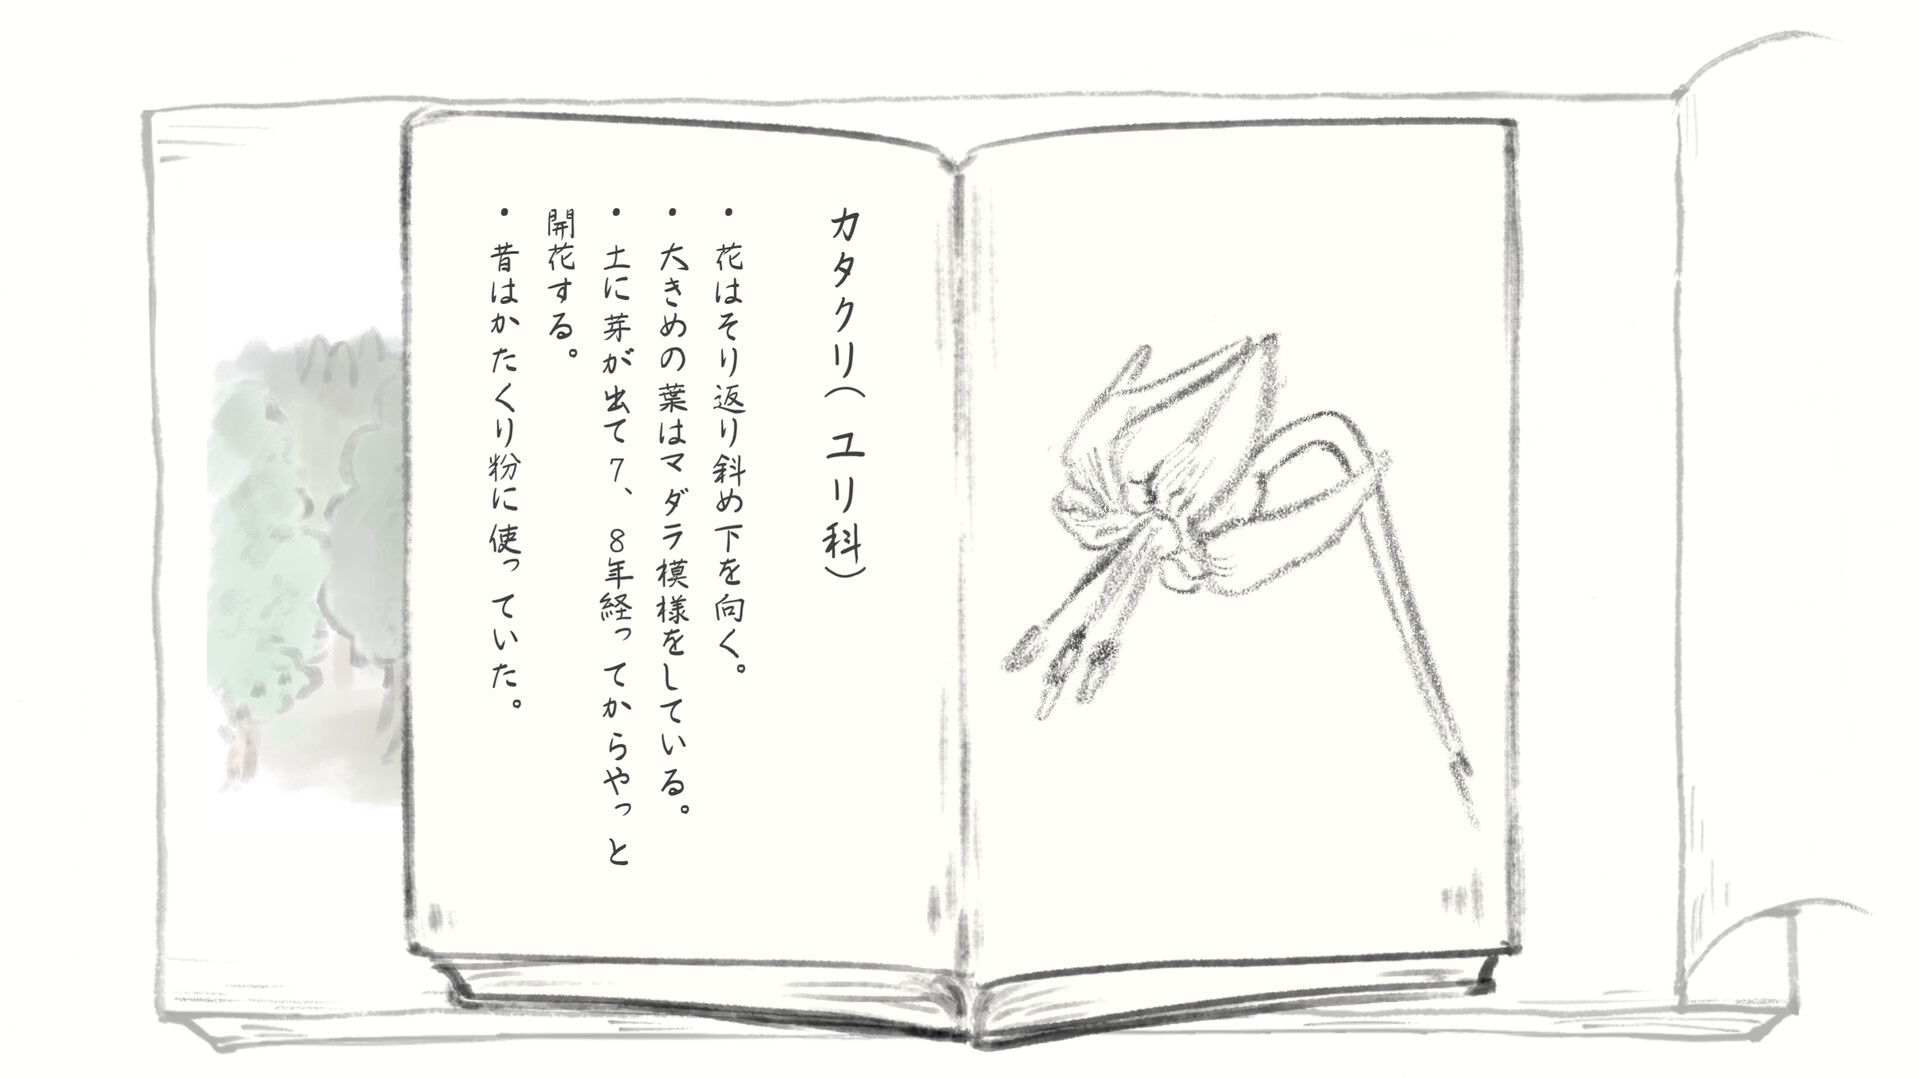 カタクリ(ユリ科)
・花はそり返り斜め下を向く。
・大きめの葉はマダラ模様をしている。
・土に芽が出て7、8年経ってからやっと
開花する。
・昔はかたくり粉に使っていた。